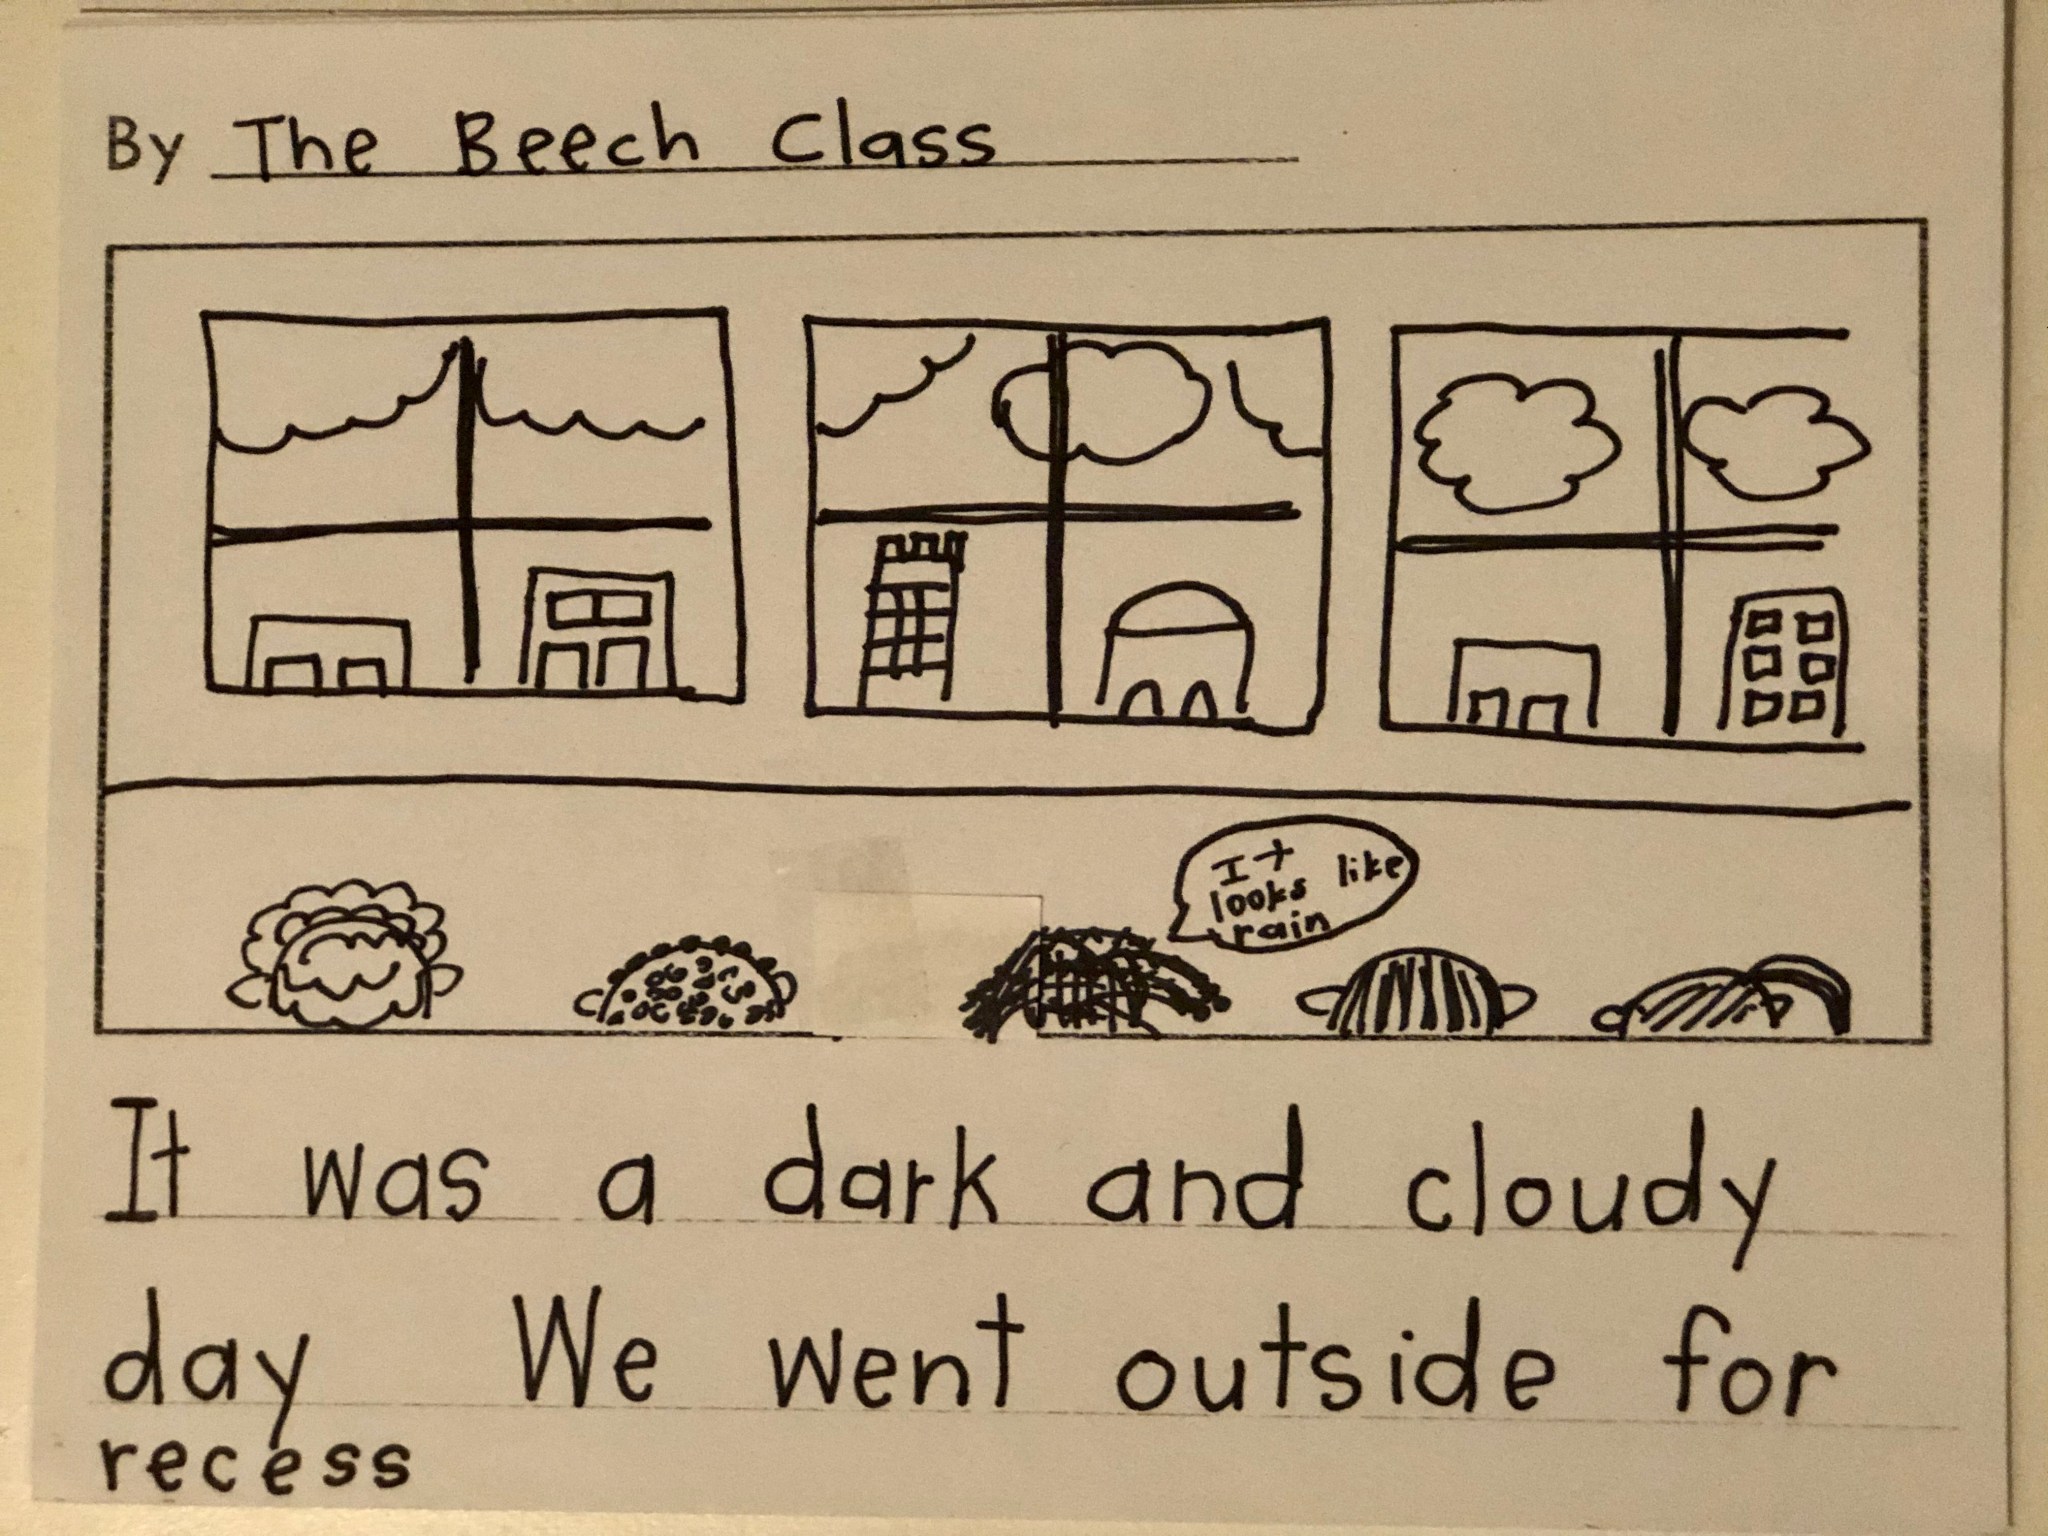 By The Beech Class
It
looks like
rain
It was a dark and cloudy
day We went outside for
recess